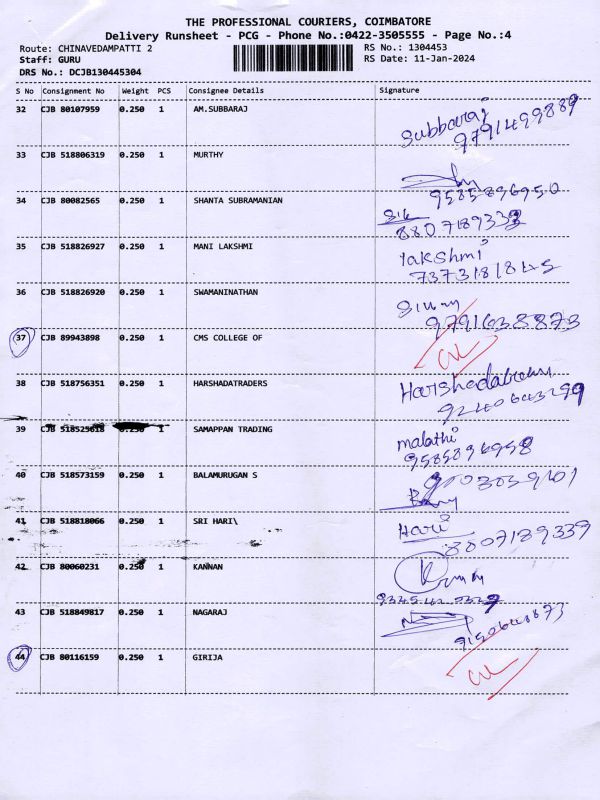 THE PROFESSIONAL COURIERS, COIMBATORE
Delivery Runsheet - PCG - Phone No.:0422-3505555 - Page No.:4
Route: CHINAVEDAMPATTI 2 RS No.: 1304453
Staff: GURU RS Date: 11-Jan-2024
DRS No.: DCJB130445304
S No Consignment No Weight PCS Consignee Details Signature
32 CJB 80107959 0.250 1 AM.SUBBARAJ Subbaraj
9791499889
33 CJB 518806319 0.250 1 MURTHY
9585896950
34 CJB 80082565 0.250 1 SHANTA SUBRAMANIAN
8807189333
35 CJB 518826927 0.250 1 MANI LAKSHMI lakshmi
7373181845
36 CJB 518826920 0.250 1 SWAMANINATHAN
9791638873
37 CJB 89943898 0.250 1 CMS COLLEGE OF
38 CJB 518756351 0.250 1 HARSHADATRADERS
39 CJB 518525618 0.250 1 SAMAPPAN TRADING malathi
9585896958
40 CJB 518573159 0.250 1 BALAMURUGAN S
41 CJB 518818066 0.250 1 SRI HARI\ Hari
8807189339
42 CJB 80060231 0.250 1 KANNAN
43 CJB 518849817 0.250 1 NAGARAJ
44 CJB 80116159 0.250 1 GIRIJA